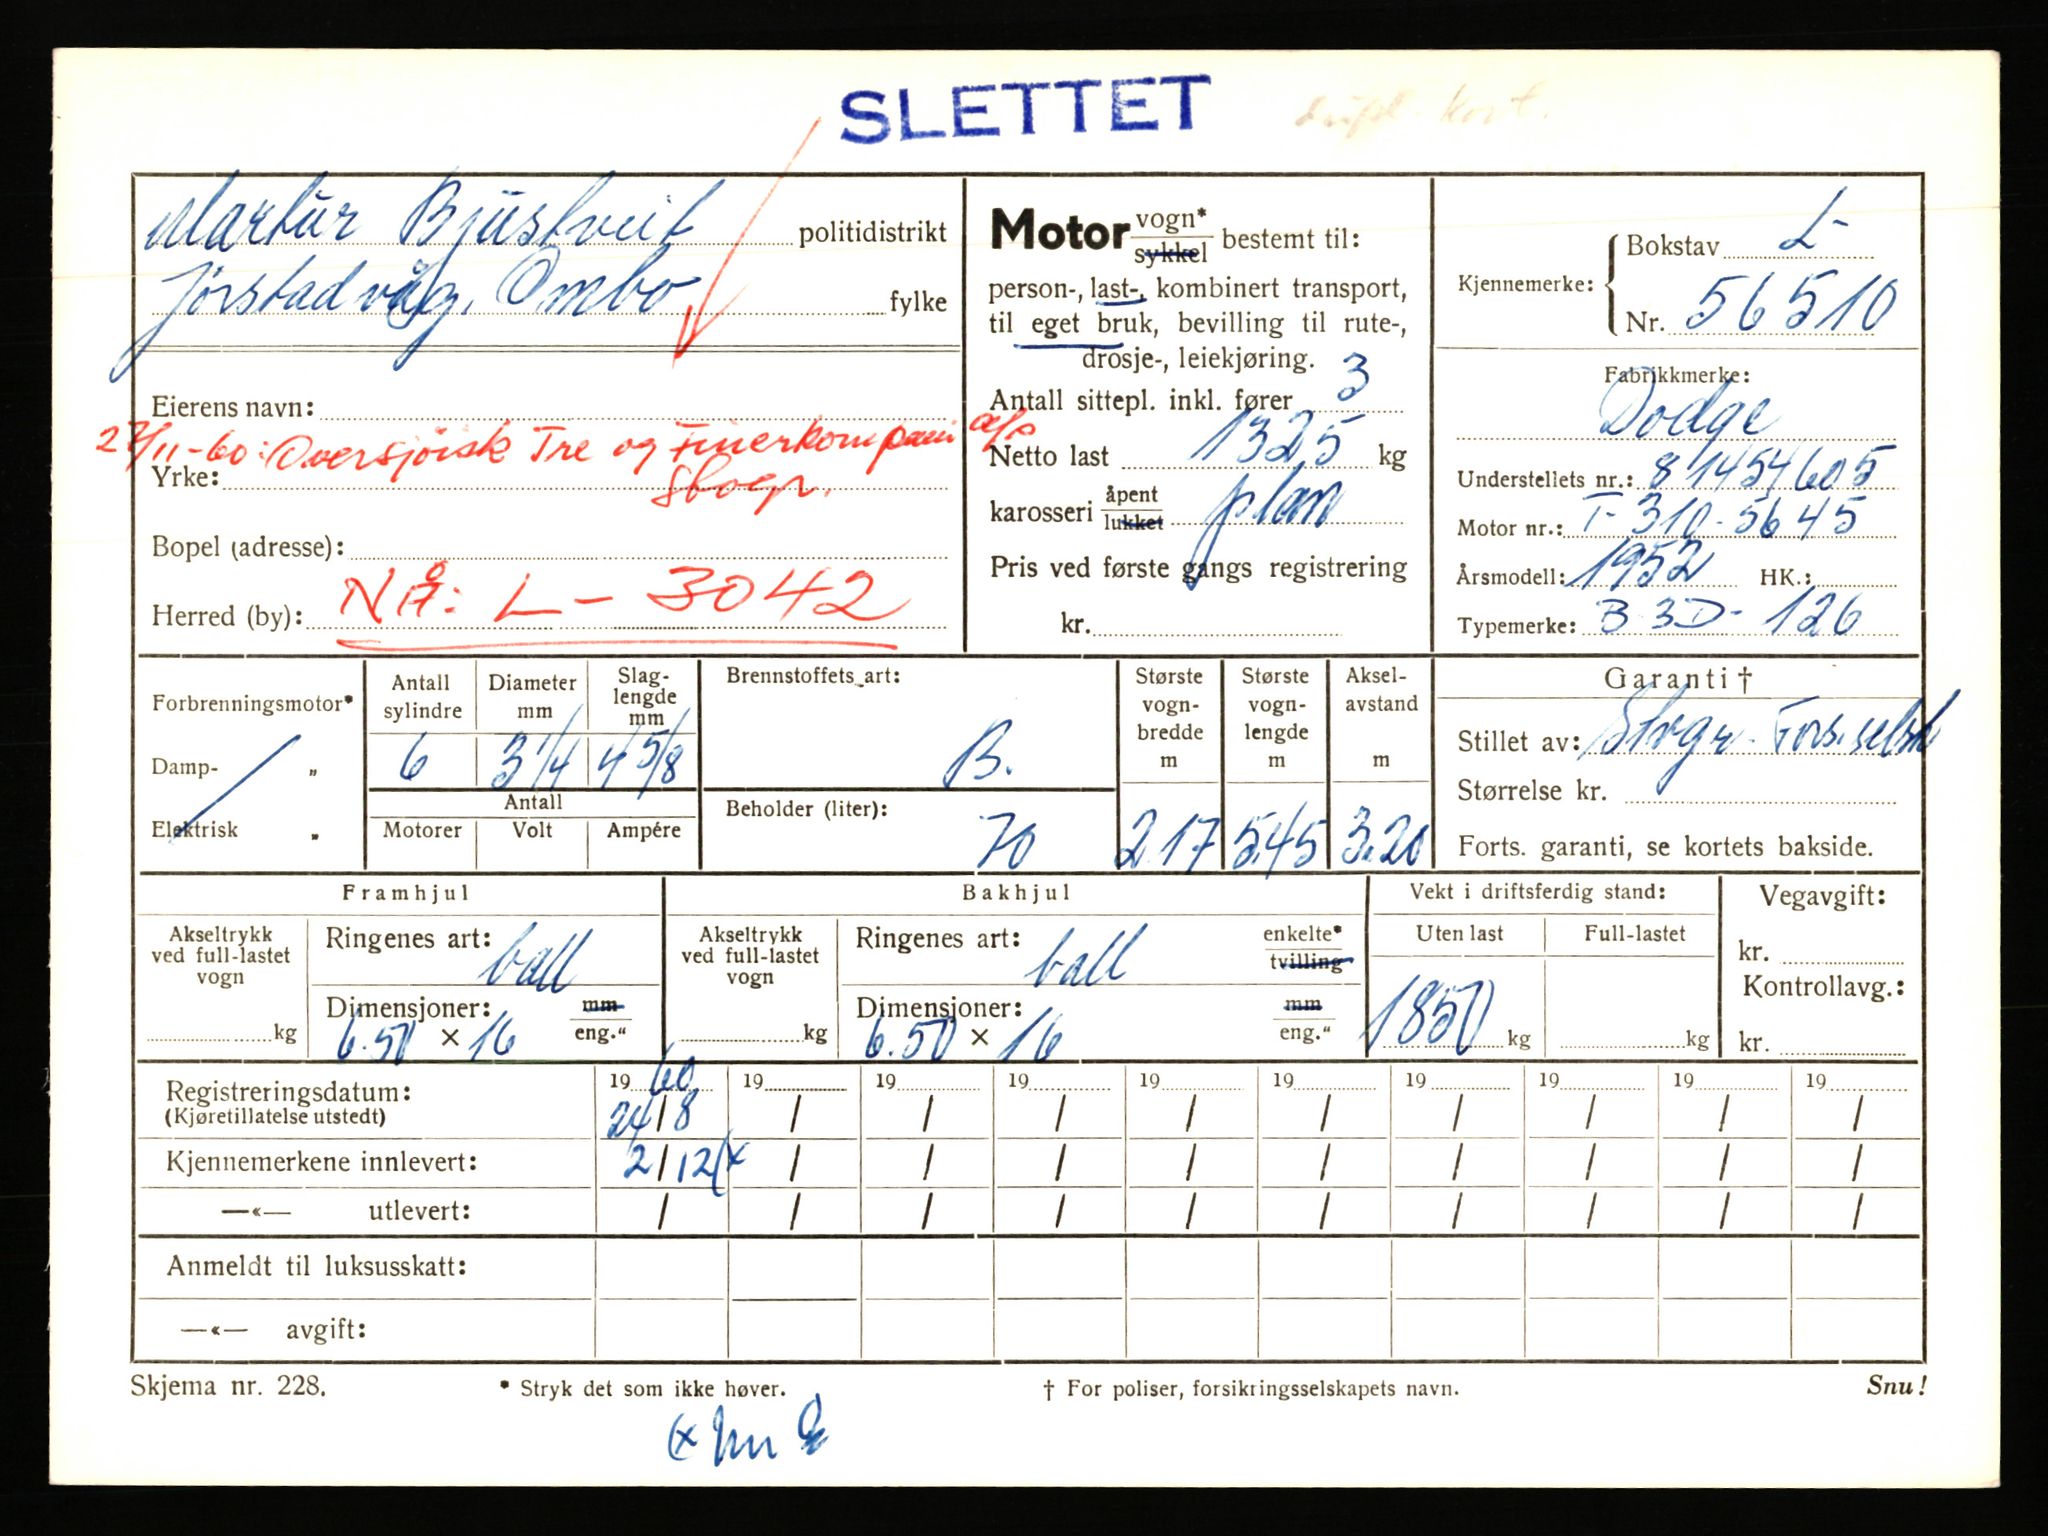 SLETTET
dupl. kort.
Martin Bjustveit politidistrikt
Jørstadvåg, Ombo fylke
Eierens navn:
27/11-60: Oversjøisk Tre og Finerkompani a/s
Yrke: Sbogr.
Bopel (adresse):
Herred (by): NÅ: L - 3042
Motor vogn* sykkel bestemt til:
person-, last-, kombinert transport,
til eget bruk, bevilling til rute-,
drosje-, leiekjøring.
Antall sittepl. inkl. fører 3
Netto last 1325 kg
karosseri åpent lukket plan
Pris ved første gangs registrering
kr.
Kjennemerke: Bokstav L-
Nr. 56510
Fabrikkmerke:
Dodge
Understellets nr.: 81454605
Motor nr.: T-310-5645
Årsmodell: 1952 HK.:
Typemerke: B-3D-126
Forbrenningsmotor*
Damp- „
Elektrisk „
Antall sylindre 6
Diameter mm 3 1/4
Slaglengde mm 4 5/8
Antall
Motorer Volt Ampére
Brennstoffets art: B.
Beholder (liter): 70
Største vognbredde m 2.17
Største vognlengde m 5.45
Akselavstand m 3.20
Garanti †
Stillet av: Stvgr. Fors.selsk
Størrelse kr.
Forts. garanti, se kortets bakside.
Framhjul
Akseltrykk ved full-lastet vogn kg
Ringenes art: ball
Dimensjoner: mm
6.50 × 16 eng."
Bakhjul
Akseltrykk ved full-lastet vogn kg
Ringenes art: ball enkelte* tvilling
Dimensjoner: mm
6.50 × 16 eng."
Vekt i driftsferdig stand:
Uten last Full-lastet
1850 kg kg
Vegavgift:
kr.
Kontrollavg.:
kr.
Registreringsdatum: 19 60 19 19 19 19 19 19 19 19 19
(Kjøretillatelse utstedt) 24/8 / / / / / / / / /
Kjennemerkene innlevert: 2/12 (x / / / / / / / / /
—«— utlevert: / / / / / / / / / /
Anmeldt til luksusskatt:
—«— avgift:
Skjema nr. 228. * Stryk det som ikke høver. † For poliser, forsikringsselskapets navn. Snu!
(x